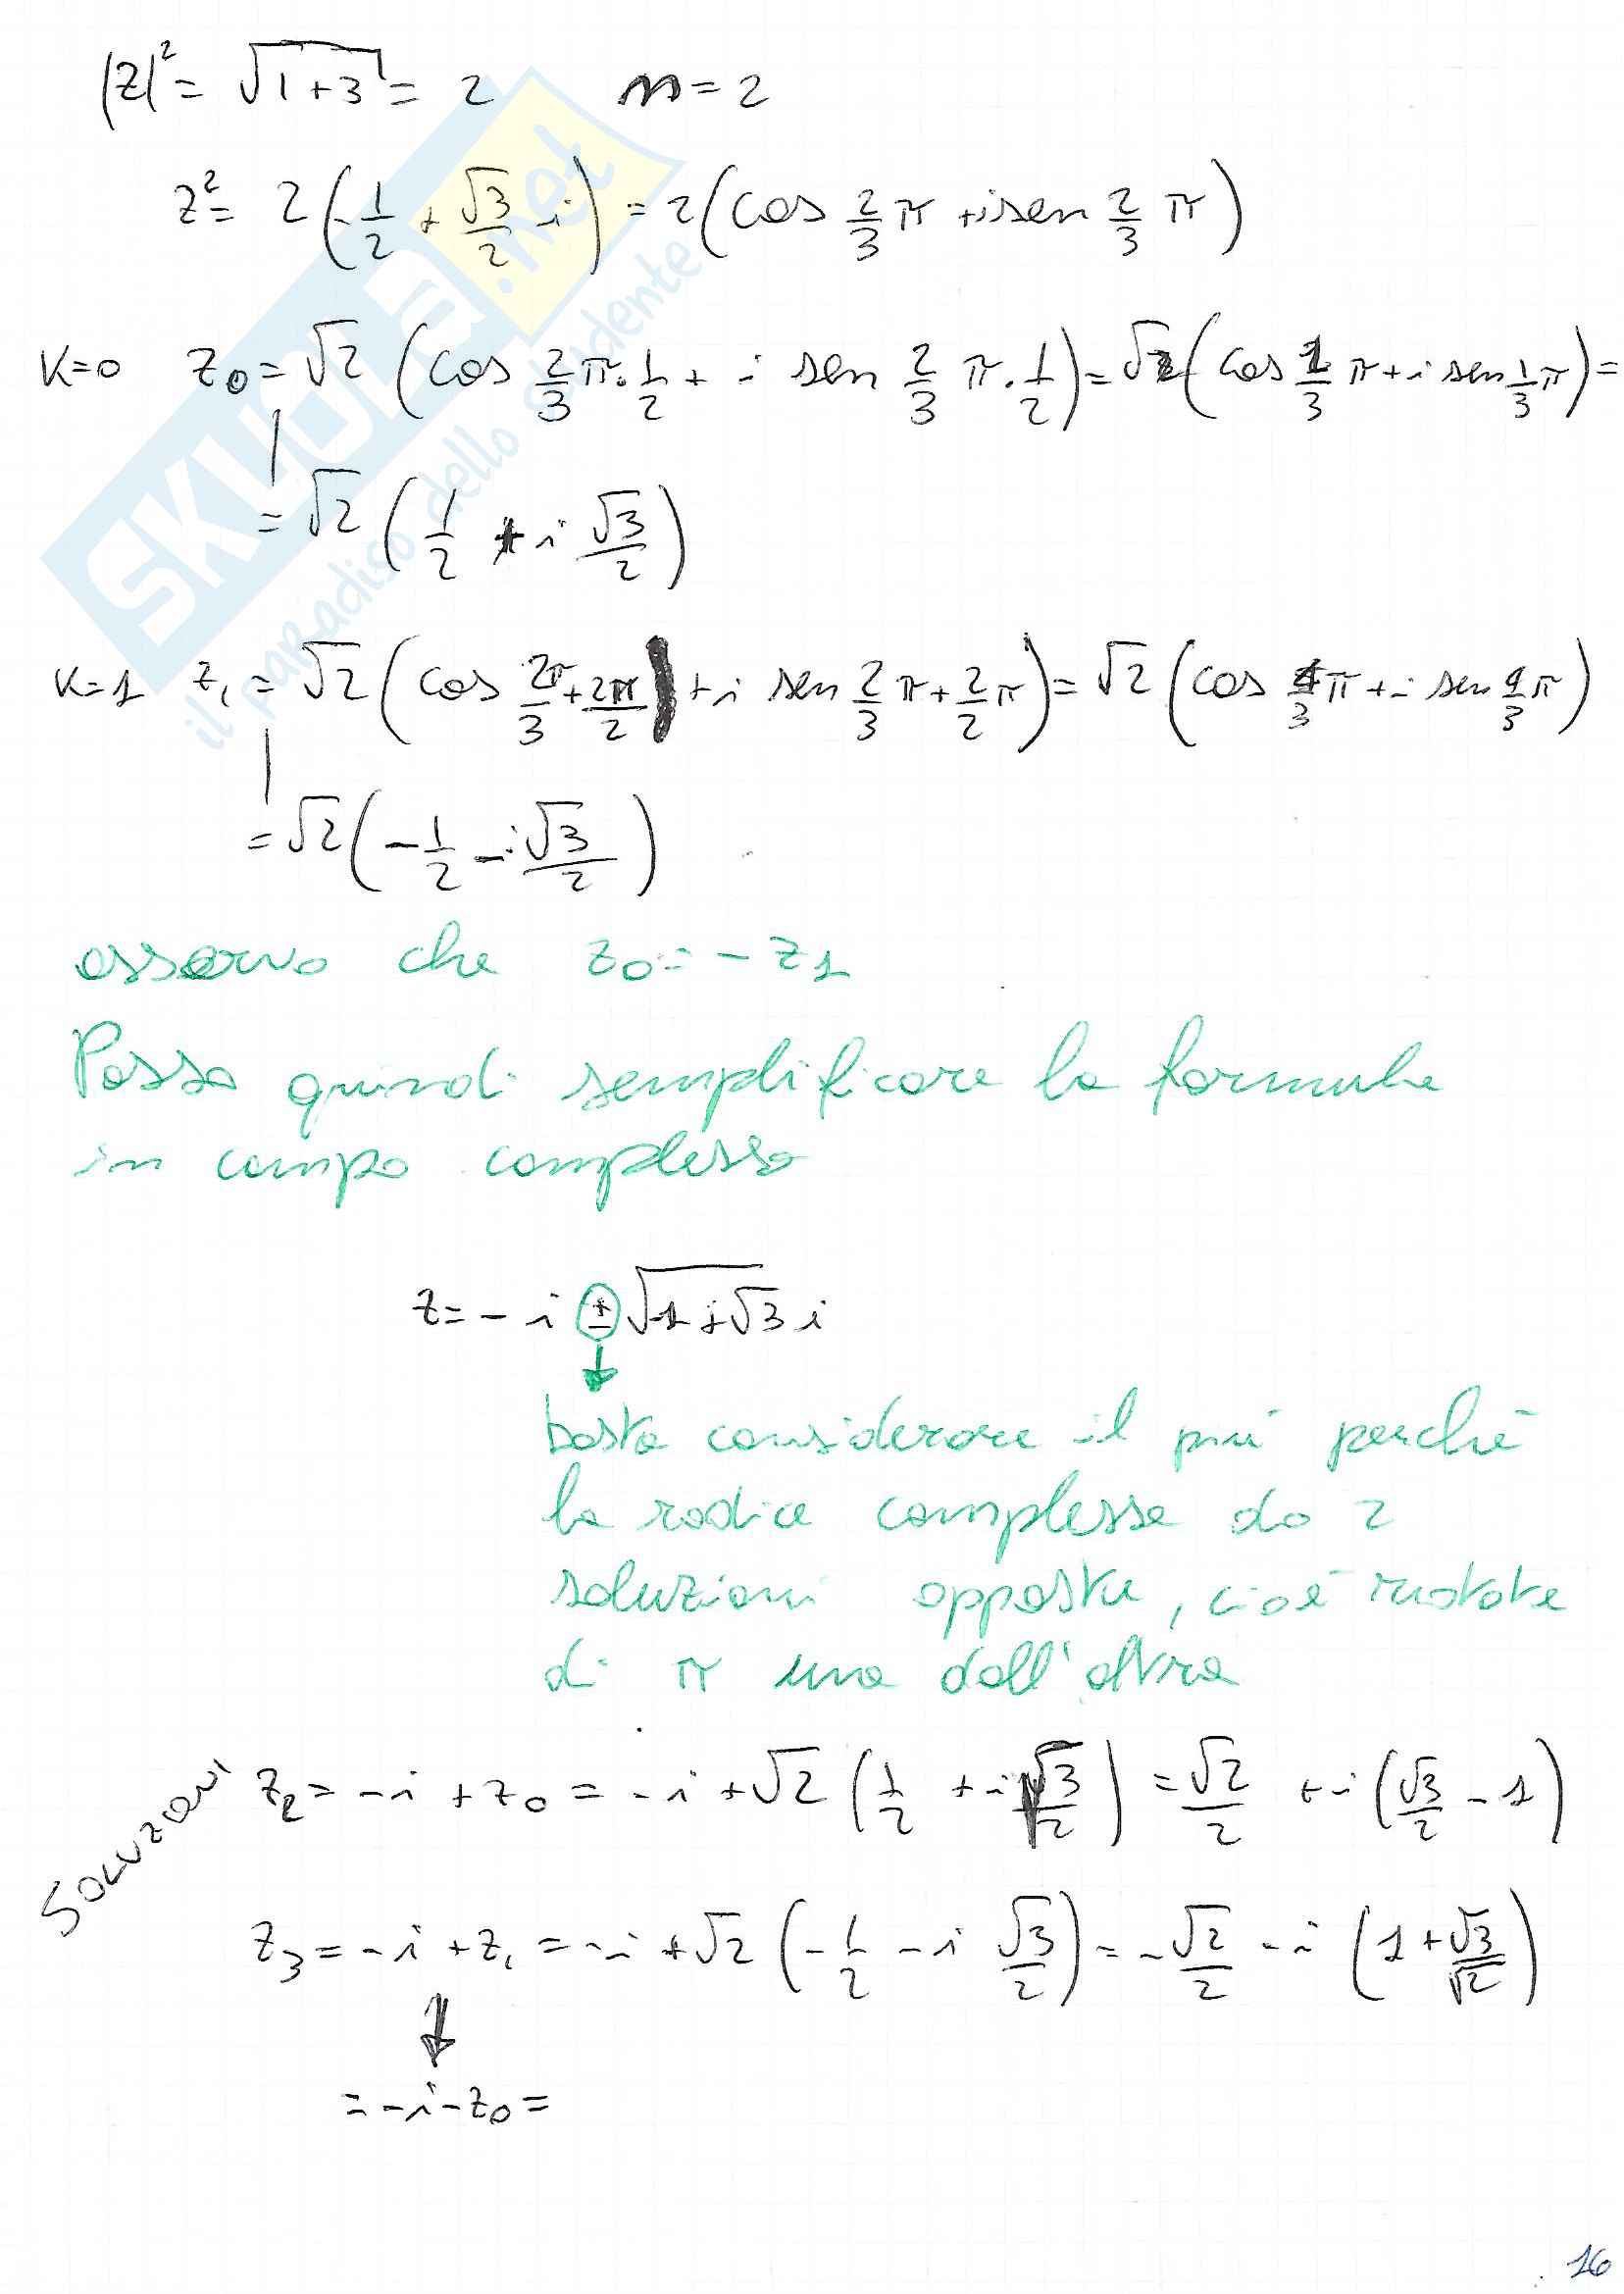 |z|² = √1+3 = 2 n=2
z² = 2(-1/2 + √3/2 i) = 2(cos 2/3 π + i sen 2/3 π)
K=0 z₀ = √2 (cos 2/3 π · 1/2 + i sen 2/3 π · 1/2) = √2 (cos 1/3 π + i sen 1/3 π) =
= √2 (1/2 + i √3/2)
K=1 z₁ = √2 (cos 2π/3 + 2π/2 + i sen 2/3 π + 2/2 π) = √2 (cos 4/3 π + i sen 4/3 π)
= √2 (-1/2 - i √3/2)
osservo che z₀ = -z₁
Posso quindi semplificare la formula
in campo complesso
z = -i ± √-1+√3 i
basta considerare il più perchè
la radice complessa da 2
soluzioni opposte, cioè ruotate
di π una dall'altra
SOLUZIONI z₂ = -i + z₀ = -i + √2 (1/2 + i √3/2) = √2/2 + i (√3/2 - 1)
z₃ = -i + z₁ = -i + √2 (-1/2 - i √3/2) = -√2/2 - i (1 + √3/√2)
= -i - z₀ =
16
SKUOLA.net
il paradiso dello studente